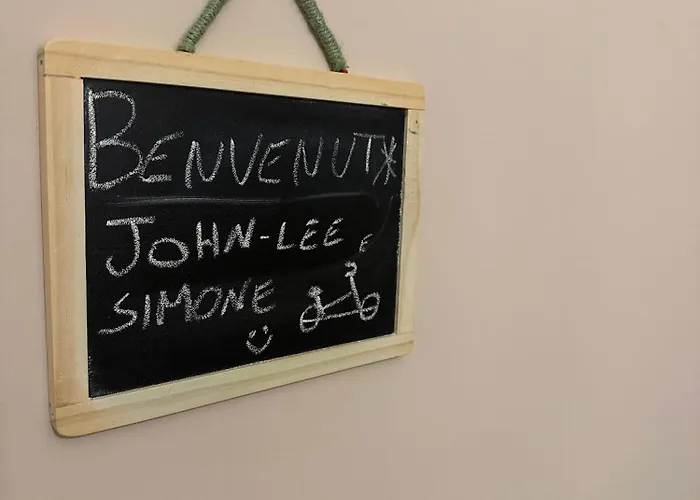 BENVENUT*
JOHN-LEE E
SIMONE